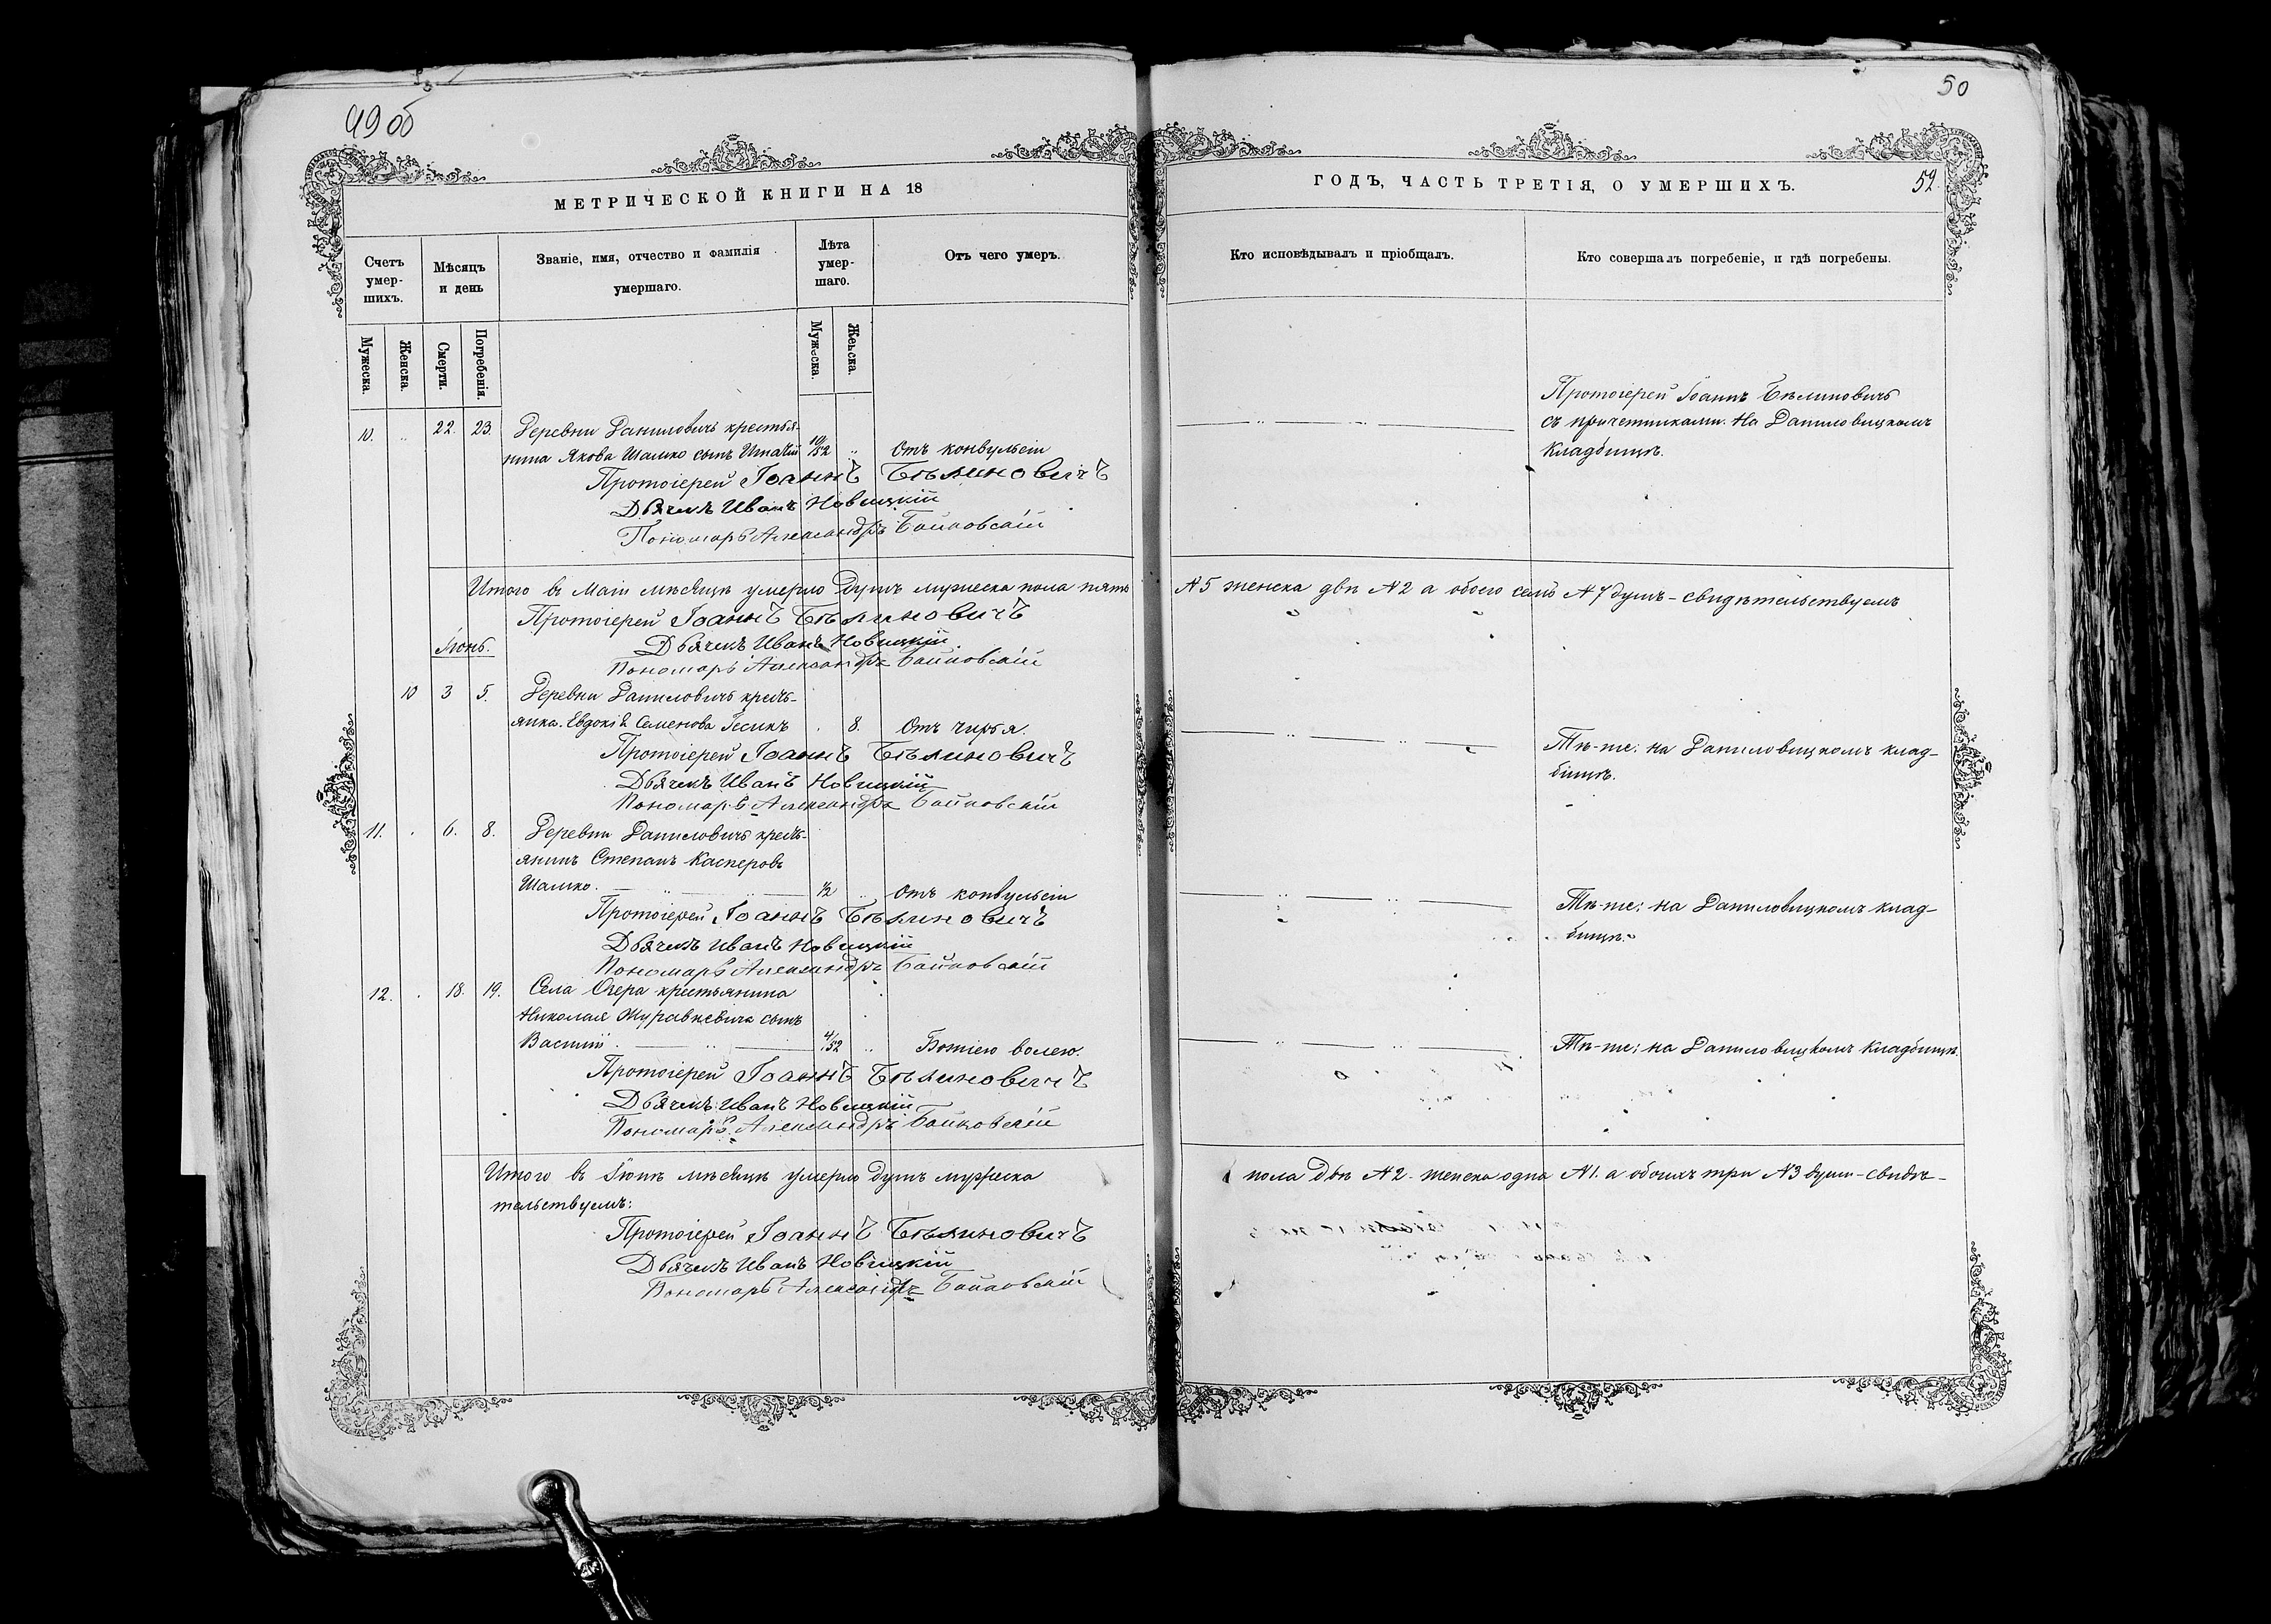 49 об
50
МЕТРИЧЕСКОЙ КНИГИ НА 18
ГОДЪ, ЧАСТЬ ТРЕТІЯ, О УМЕРШИХЪ.
52.
Счетъ умер-шихъ.
Мѣсяцъ и день
Званіе, имя, отчество и фамилія умершаго.
Лѣта умер-шаго.
Отъ чего умеръ.
Кто исповѣдывалъ и пріобщалъ.
Кто совершалъ погребеніе, и гдѣ погребены.
Мужеска.
Женска.
Смерти.
Погребенія.
Мужеска.
Женска.
10. 22. 23. Деревни Даниловичъ крестья-
нина Якова Шамко сынъ 10/52 Отъ конвульсіи
Протоіерей Іоаннъ Бѣлиновичъ
Дьячекъ Иванъ Новицкій
Пономарь Александръ Байковскій
Протоіерей Іоаннъ Бѣлиновичъ
съ причетниками. На Даниловицкомъ
Кладбищѣ.
Итого въ Маіи мѣсяцѣ умерло душъ мужеска пола пять №5 женска двѣ №2 а обоего семь №7 душъ - свидѣтельствуемъ
Протоіерей Іоаннъ Бѣлиновичъ
Дьячекъ Иванъ Новицкій
Пономарь Александръ Байковскій
Іюнь.
10 3 5. Деревни Даниловичъ кресть-
янка Евдокія Семенова 8. Отъ чирья.
Протоіерей Іоаннъ Бѣлиновичъ
Дьячекъ Иванъ Новицкій
Пономарь Александръ Байковскій
Тѣ-же; на Даниловицкомъ клад-
бищѣ.
11. 6. 8. Деревни Даниловичъ кресть-
янинъ Степанъ Касперовъ
Шамко. 1/2 Отъ конвульсіи
Протоіерей Іоаннъ Бѣлиновичъ
Дьячекъ Иванъ Новицкій
Пономарь Александръ Байковскій
Тѣ-же; на Даниловицкомъ клад-
бищѣ.
12. 18. 19. Села Озера крестьянина
Николая Журавкевича сынъ
Василій 4/52 Божіею волею.
Протоіерей Іоаннъ Бѣлиновичъ
Дьячекъ Иванъ Новицкій
Пономарь Александръ Байковскій
Тѣ-же; на Даниловицкомъ Кладбищѣ.
Итого въ Іюнѣ мѣсяцѣ умерло душъ мужеска пола двѣ №2. женска одна №1. а обоихъ три №3 души - свидѣ-
тельствуемъ:
Протоіерей Іоаннъ Бѣлиновичъ
Дьячекъ Иванъ Новицкій
Пономарь Александръ Байковскій